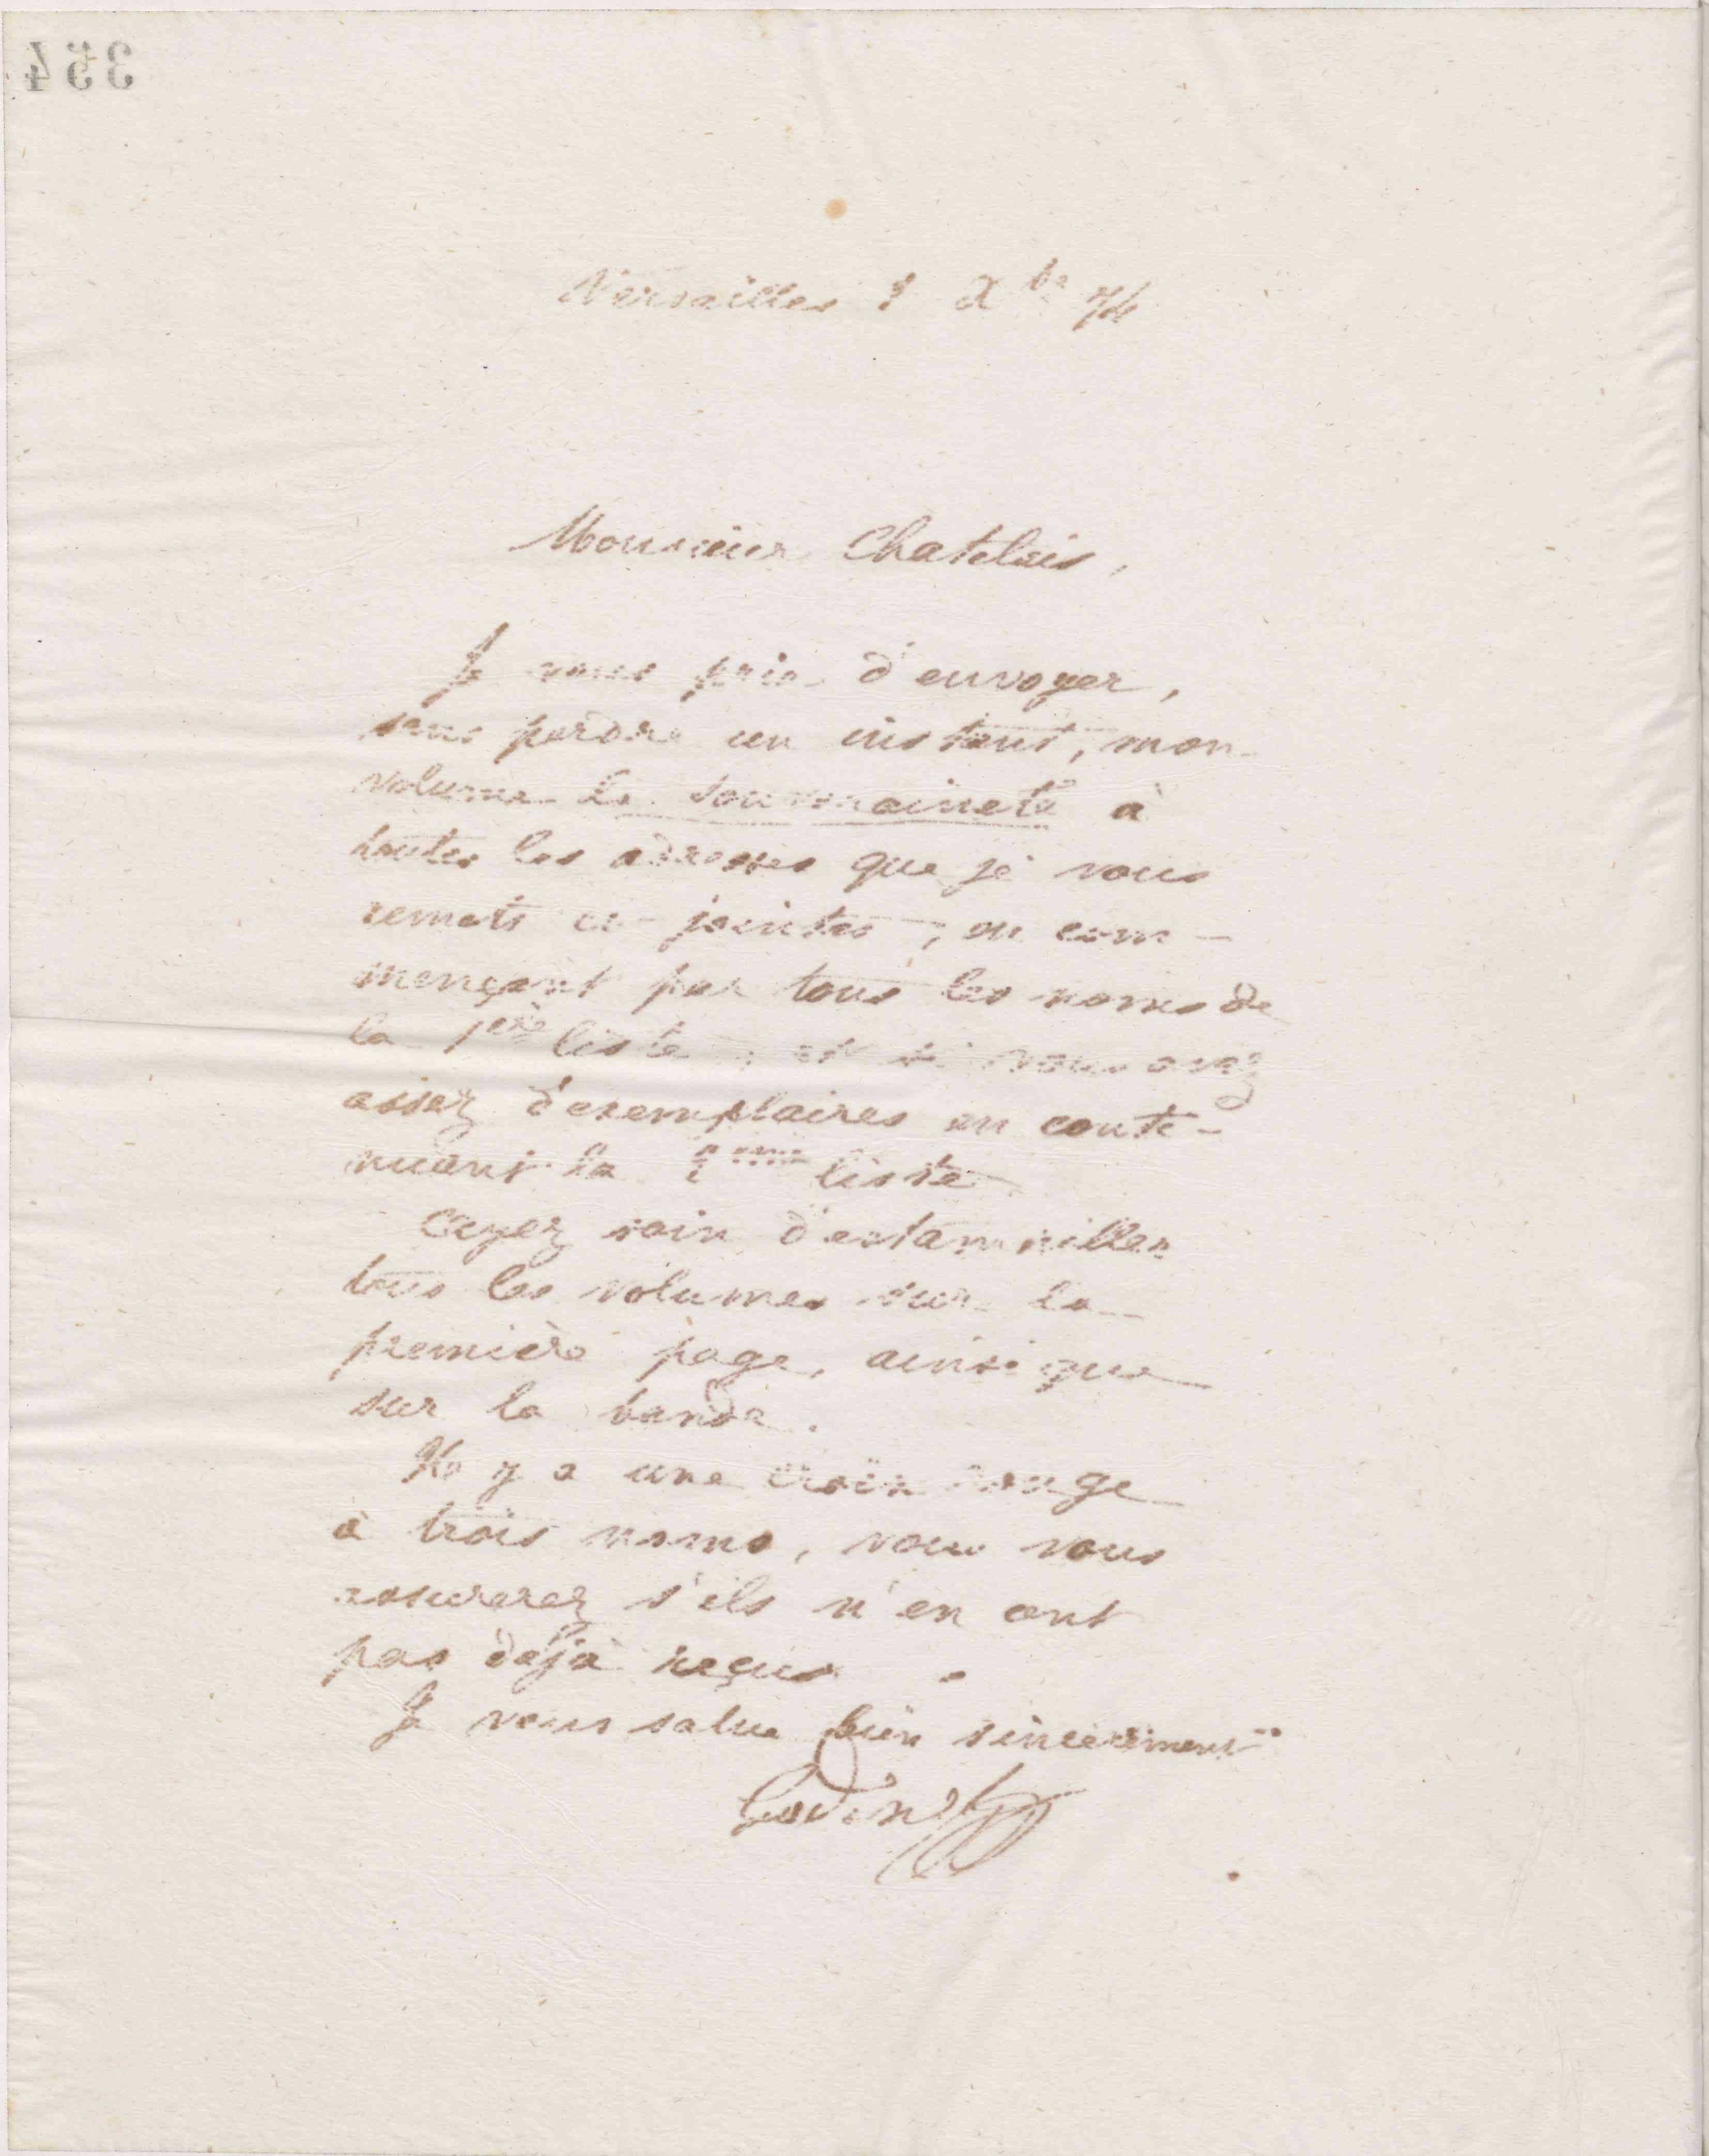 354
Versailles 8 Xbre 74
Monsieur Chatelais,
Je vous prie d'envoyer,
sans perdre un instant, mon
volume La souveraineté à
toutes les adresses que je vous
remets ci-jointes, en com-
mençant par tous les noms de
la 1ère liste, et si vous avez
assez d'exemplaires en conti-
nuant la 2ème liste
Ayez soin d'estampiller
tous les volumes sur la
première page, ainsi que
sur la bande.
Il y a une croix rouge
à trois noms, vous vous
assurerez s'ils n'en ont
pas déjà reçus.
Je vous salue bien sincèrement
Godin